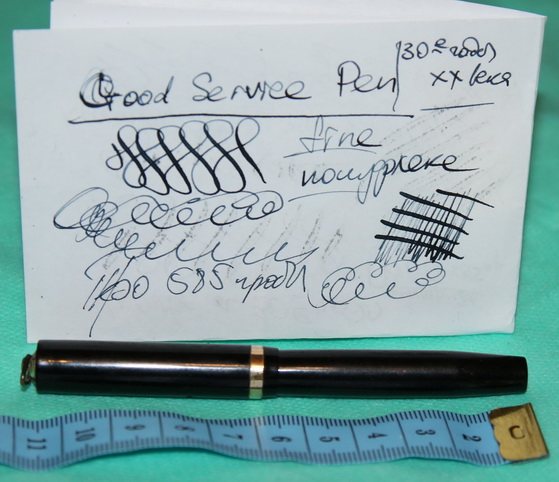 Good Service Pen
30е годы
XX века
fine
полуфлекс
585 пробы
11 10 9 8 7 6 5 4 3 2